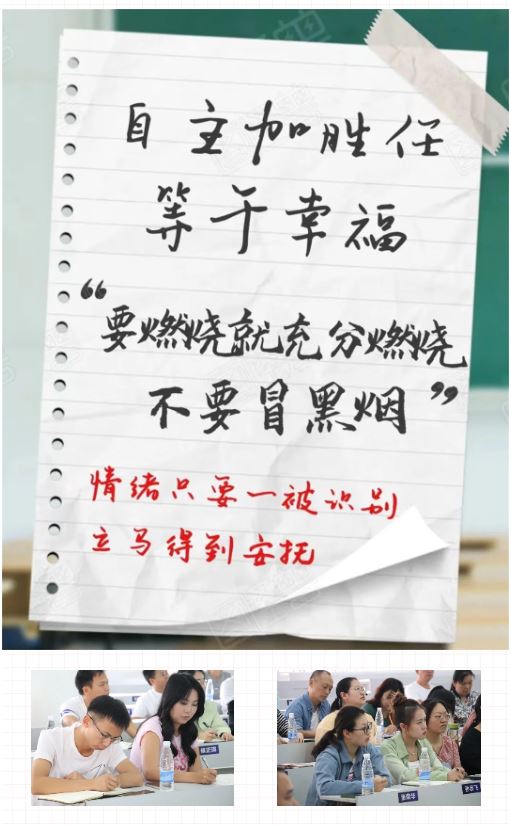 自主加胜任
等于幸福
“要燃烧就充分燃烧
不要冒黑烟”
情绪只要一被识别
立马得到安抚